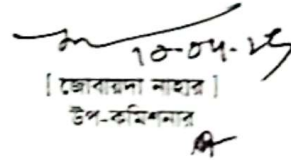 ১০-০৮-২৫
[ জোবায়দা নাহার ]
উপ-কমিশনার